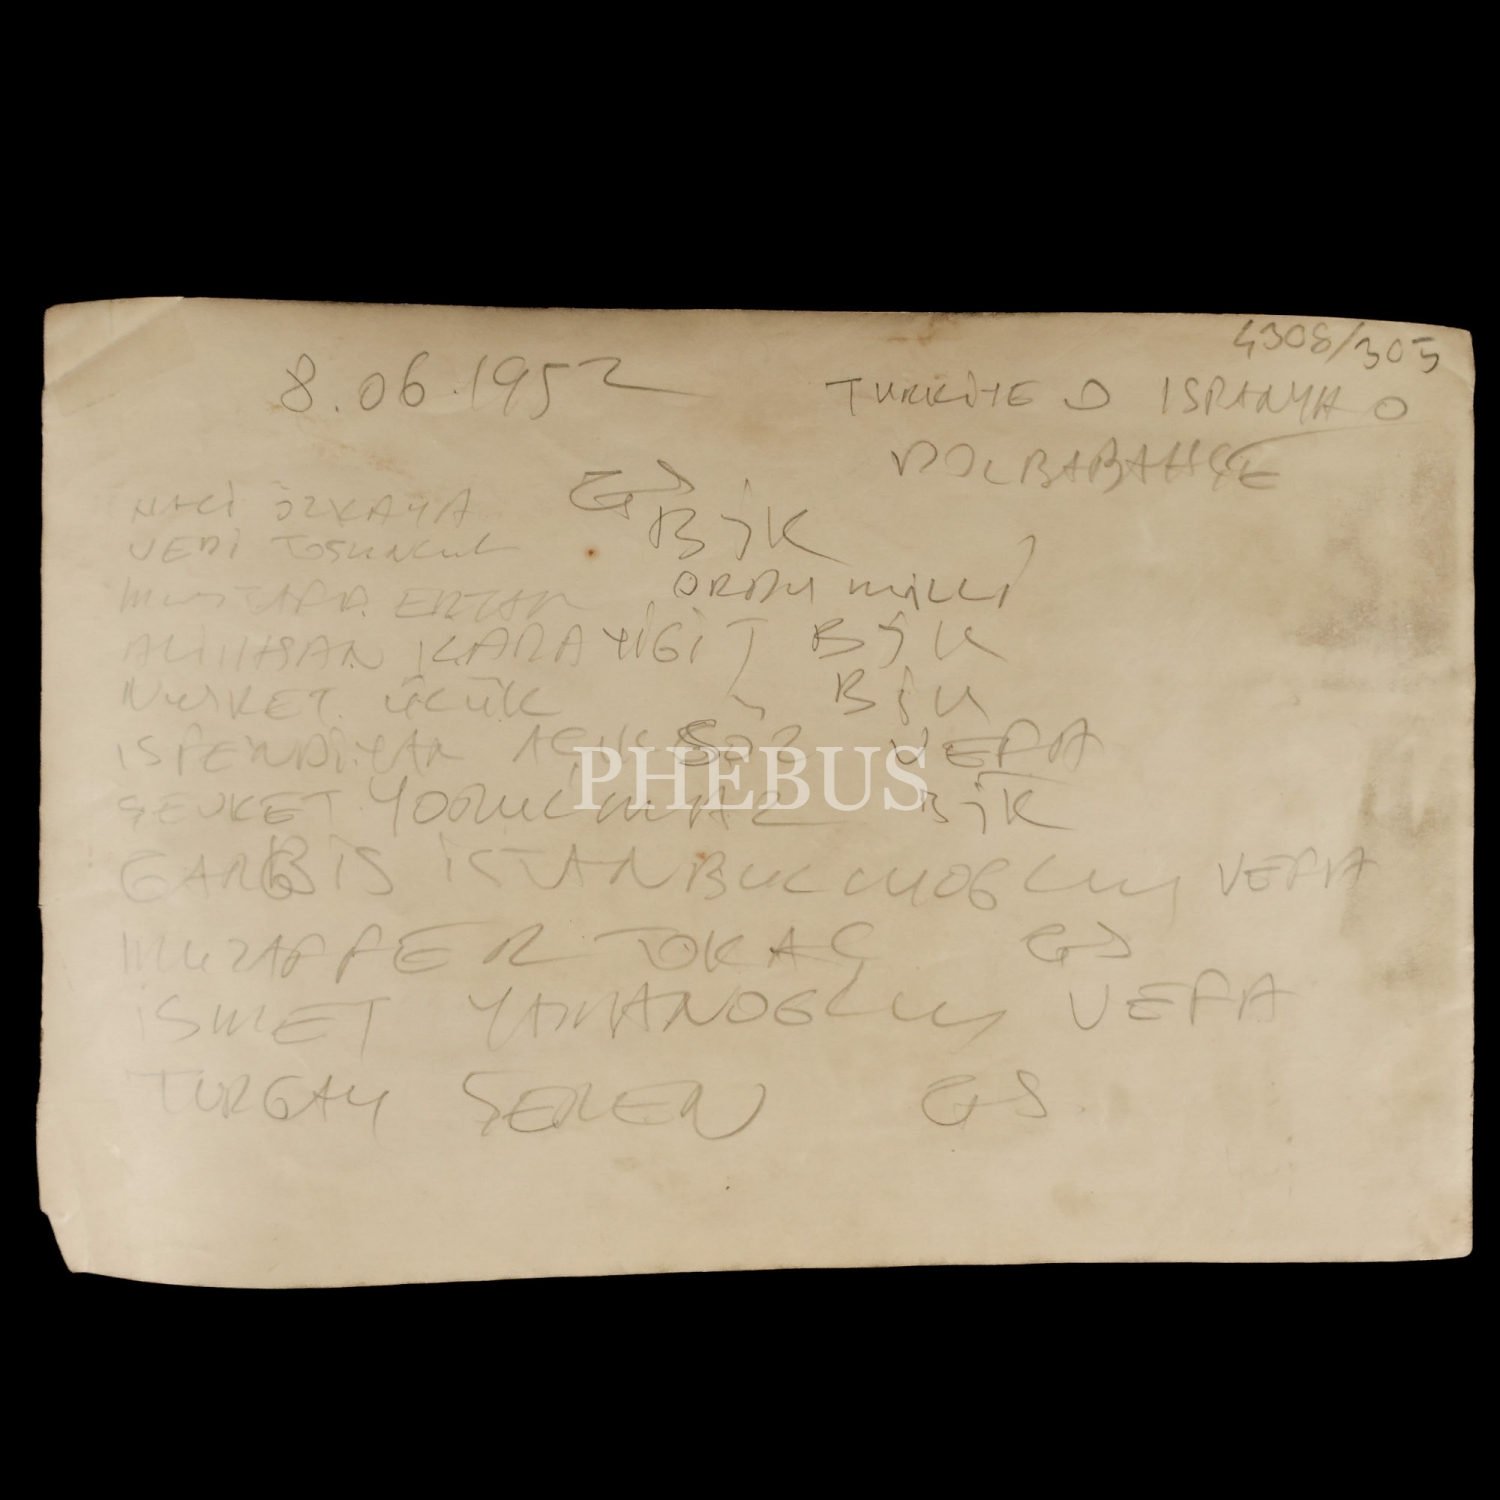 4308/305
8.06.1952
TURKİYE 0 ISPANYA 0
DOLBABAHÇE
NACİ ÖZKAYA GS
VEDİ TOSUNCUK BJK
MUSTAFA ERTAN ORDU MİLLİ
ALİ IHSAN KARAYİGİT BJK
NUSRET ÜLÜK BJK
ISFENDİYAR AÇIKSÖZ VEFA
PHEBUS
ŞEVKET YORULMAZ BJK
GARBİS İSTANBULLUOGLU VEFA
MUZAFFER TOKAÇ GS
İSMET YAMANOGLU VEFA
TURGAY ŞEREN GS